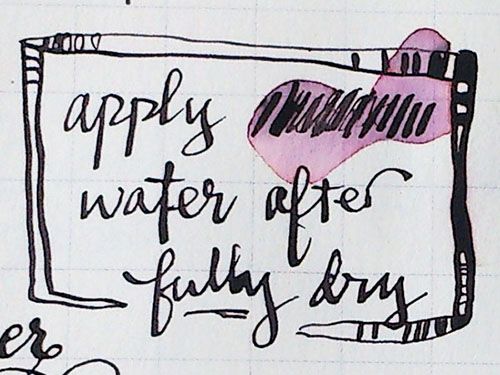 apply
water after
fully dry
er